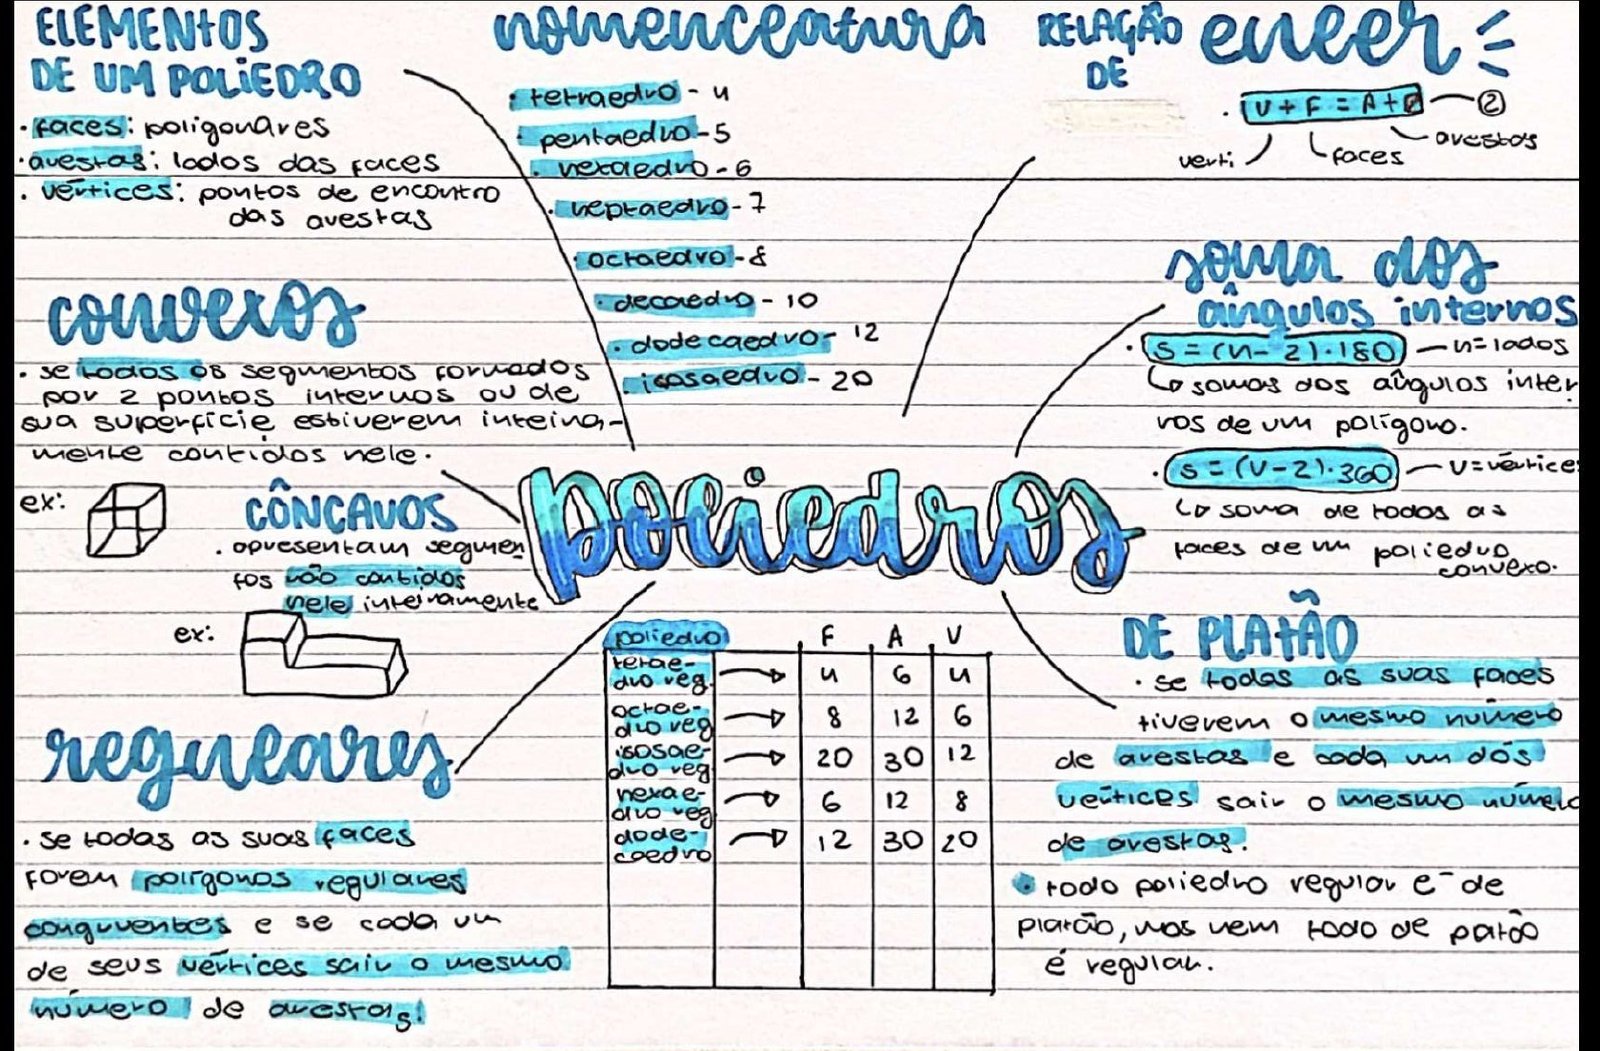 ELEMENTOS
DE UM POLIEDRO
• faces: poligonares
• arestas: lados das faces
• vértices: pontos de encontro
das arestas
nomenclatura
• tetraedro - 4
• pentaedro - 5
• hexaedro - 6
• heptaedro - 7
• octaedro - 8
• decaedro - 10
• dodecaedro - 12
• icosaedro - 20
RELAÇÃO euler
DE
• V + F = A + 2 — ②
verti
faces
arestas
soma dos
ângulos internos
• S = (n - 2) · 180 — n = lados
↳ somas dos ângulos inter
nos de um polígono.
• S = (V - 2) · 360 — V = vértice
↳ soma de todos as
faces de um poliedro
convexo.
convexos
• se todos os segmentos formados
por 2 pontos internos ou de
sua superfície estiverem inteira-
mente contidos nele.
ex:
CÔNCAVOS
• apresentam segmen
tos não contidos
nele inteiramente
ex:
poliedros
regulares
• se todas as suas faces
forem polígonos regulares
congruentes e se cada um
de seus vértices sair o mesmo
número de arestas!
poliedro F A V
tetrae-
dro reg. → 4 6 4
octae-
dro reg → 8 12 6
isosae-
dro reg → 20 30 12
hexae-
dro reg → 6 12 8
dode-
caedro → 12 30 20
DE PLATÃO
• se todas as suas faces
tiverem o mesmo número
de arestas e cada um dos
vértices sair o mesmo número
de arestas.
• todo poliedro regular é de
platão, mas nem todo de platão
é regular.